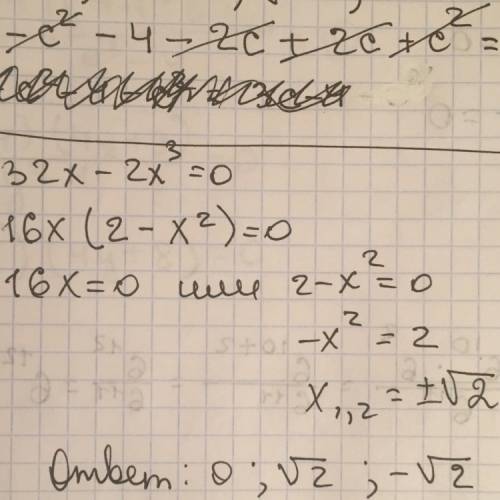 -c² - 4 - 2c + 2c + c² =
32x - 2x³ = 0
16x (2 - x²) = 0
16x = 0 или 2 - x² = 0
-x² = 2
x₁,₂ = ±√2
Ответ: 0 ; √2 ; -√2